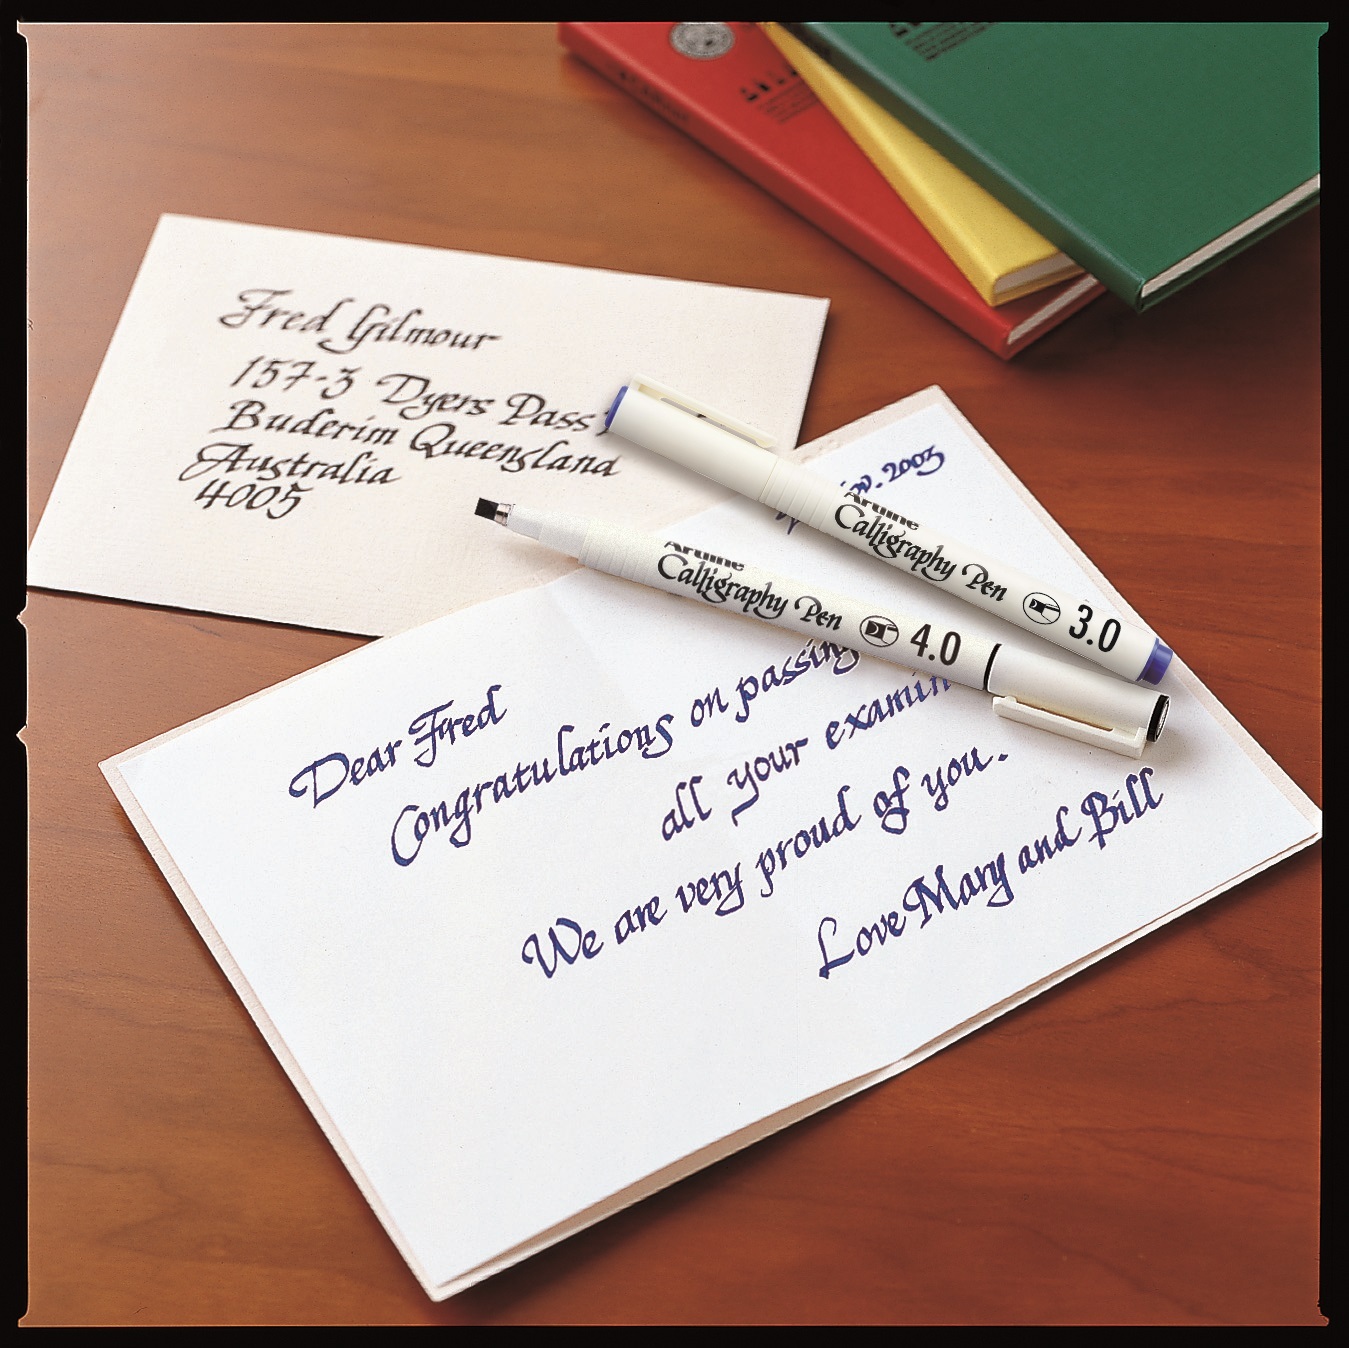 Fred Gilmour
157-3 Dyers Pass
Buderim Queensland
Australia
4005
Nov. 2003
Artline
Calligraphy Pen 3.0
Artline
Calligraphy Pen 4.0
Dear Fred
Congratulations on passing
all your examin
We are very proud of you.
Love Mary and Bill